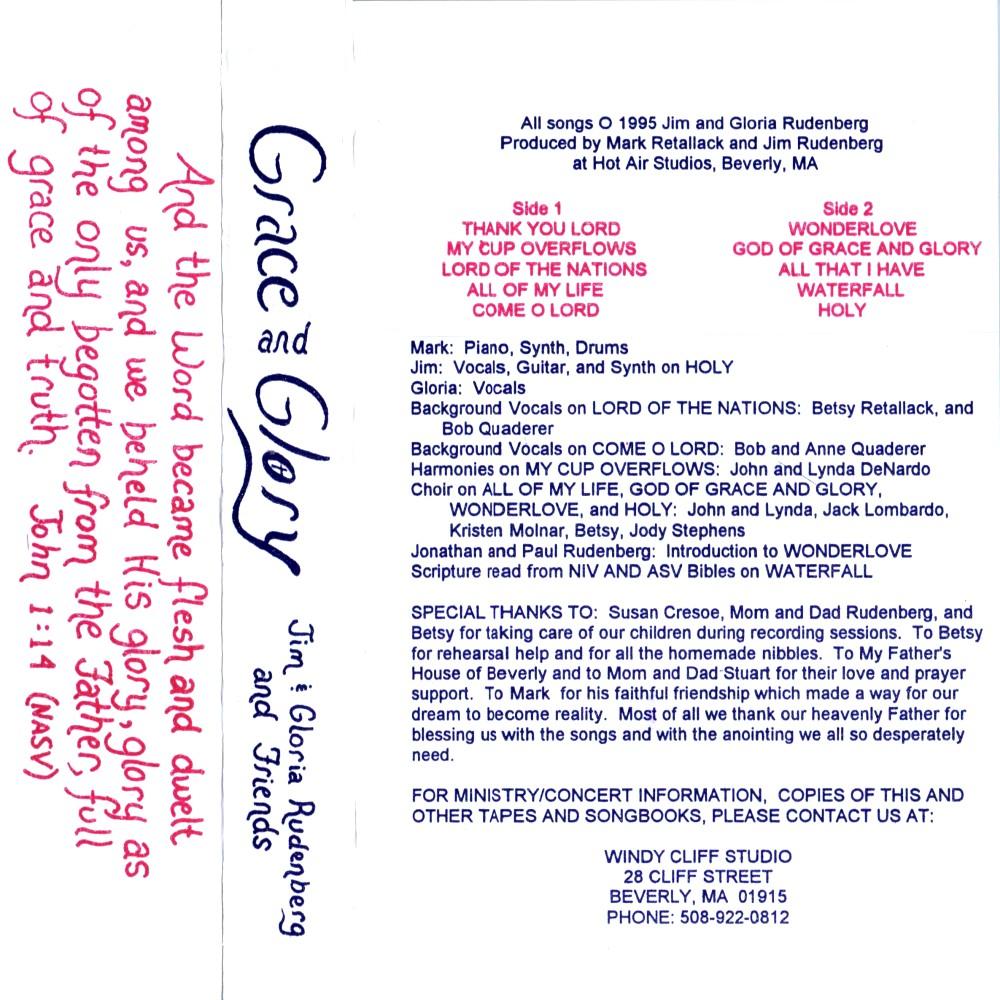 And the Word became flesh and dwelt
among us, and we beheld His glory, glory as
of the only begotten from the Father, full
of grace and truth. John 1:14 (NASV)
Grace and Glory Jim & Gloria Rudenberg
and Friends
All songs O 1995 Jim and Gloria Rudenberg
Produced by Mark Retallack and Jim Rudenberg
at Hot Air Studios, Beverly, MA
Side 1
THANK YOU LORD
MY CUP OVERFLOWS
LORD OF THE NATIONS
ALL OF MY LIFE
COME O LORD
Side 2
WONDERLOVE
GOD OF GRACE AND GLORY
ALL THAT I HAVE
WATERFALL
HOLY
Mark: Piano, Synth, Drums
Jim: Vocals, Guitar, and Synth on HOLY
Gloria: Vocals
Background Vocals on LORD OF THE NATIONS: Betsy Retallack, and
Bob Quaderer
Background Vocals on COME O LORD: Bob and Anne Quaderer
Harmonies on MY CUP OVERFLOWS: John and Lynda DeNardo
Choir on ALL OF MY LIFE, GOD OF GRACE AND GLORY,
WONDERLOVE, and HOLY: John and Lynda, Jack Lombardo,
Kristen Molnar, Betsy, Jody Stephens
Jonathan and Paul Rudenberg: Introduction to WONDERLOVE
Scripture read from NIV AND ASV Bibles on WATERFALL
SPECIAL THANKS TO: Susan Cresoe, Mom and Dad Rudenberg, and
Betsy for taking care of our children during recording sessions. To Betsy
for rehearsal help and for all the homemade nibbles. To My Father's
House of Beverly and to Mom and Dad Stuart for their love and prayer
support. To Mark for his faithful friendship which made a way for our
dream to become reality. Most of all we thank our heavenly Father for
blessing us with the songs and with the anointing we all so desperately
need.
FOR MINISTRY/CONCERT INFORMATION, COPIES OF THIS AND
OTHER TAPES AND SONGBOOKS, PLEASE CONTACT US AT:
WINDY CLIFF STUDIO
28 CLIFF STREET
BEVERLY, MA 01915
PHONE: 508-922-0812